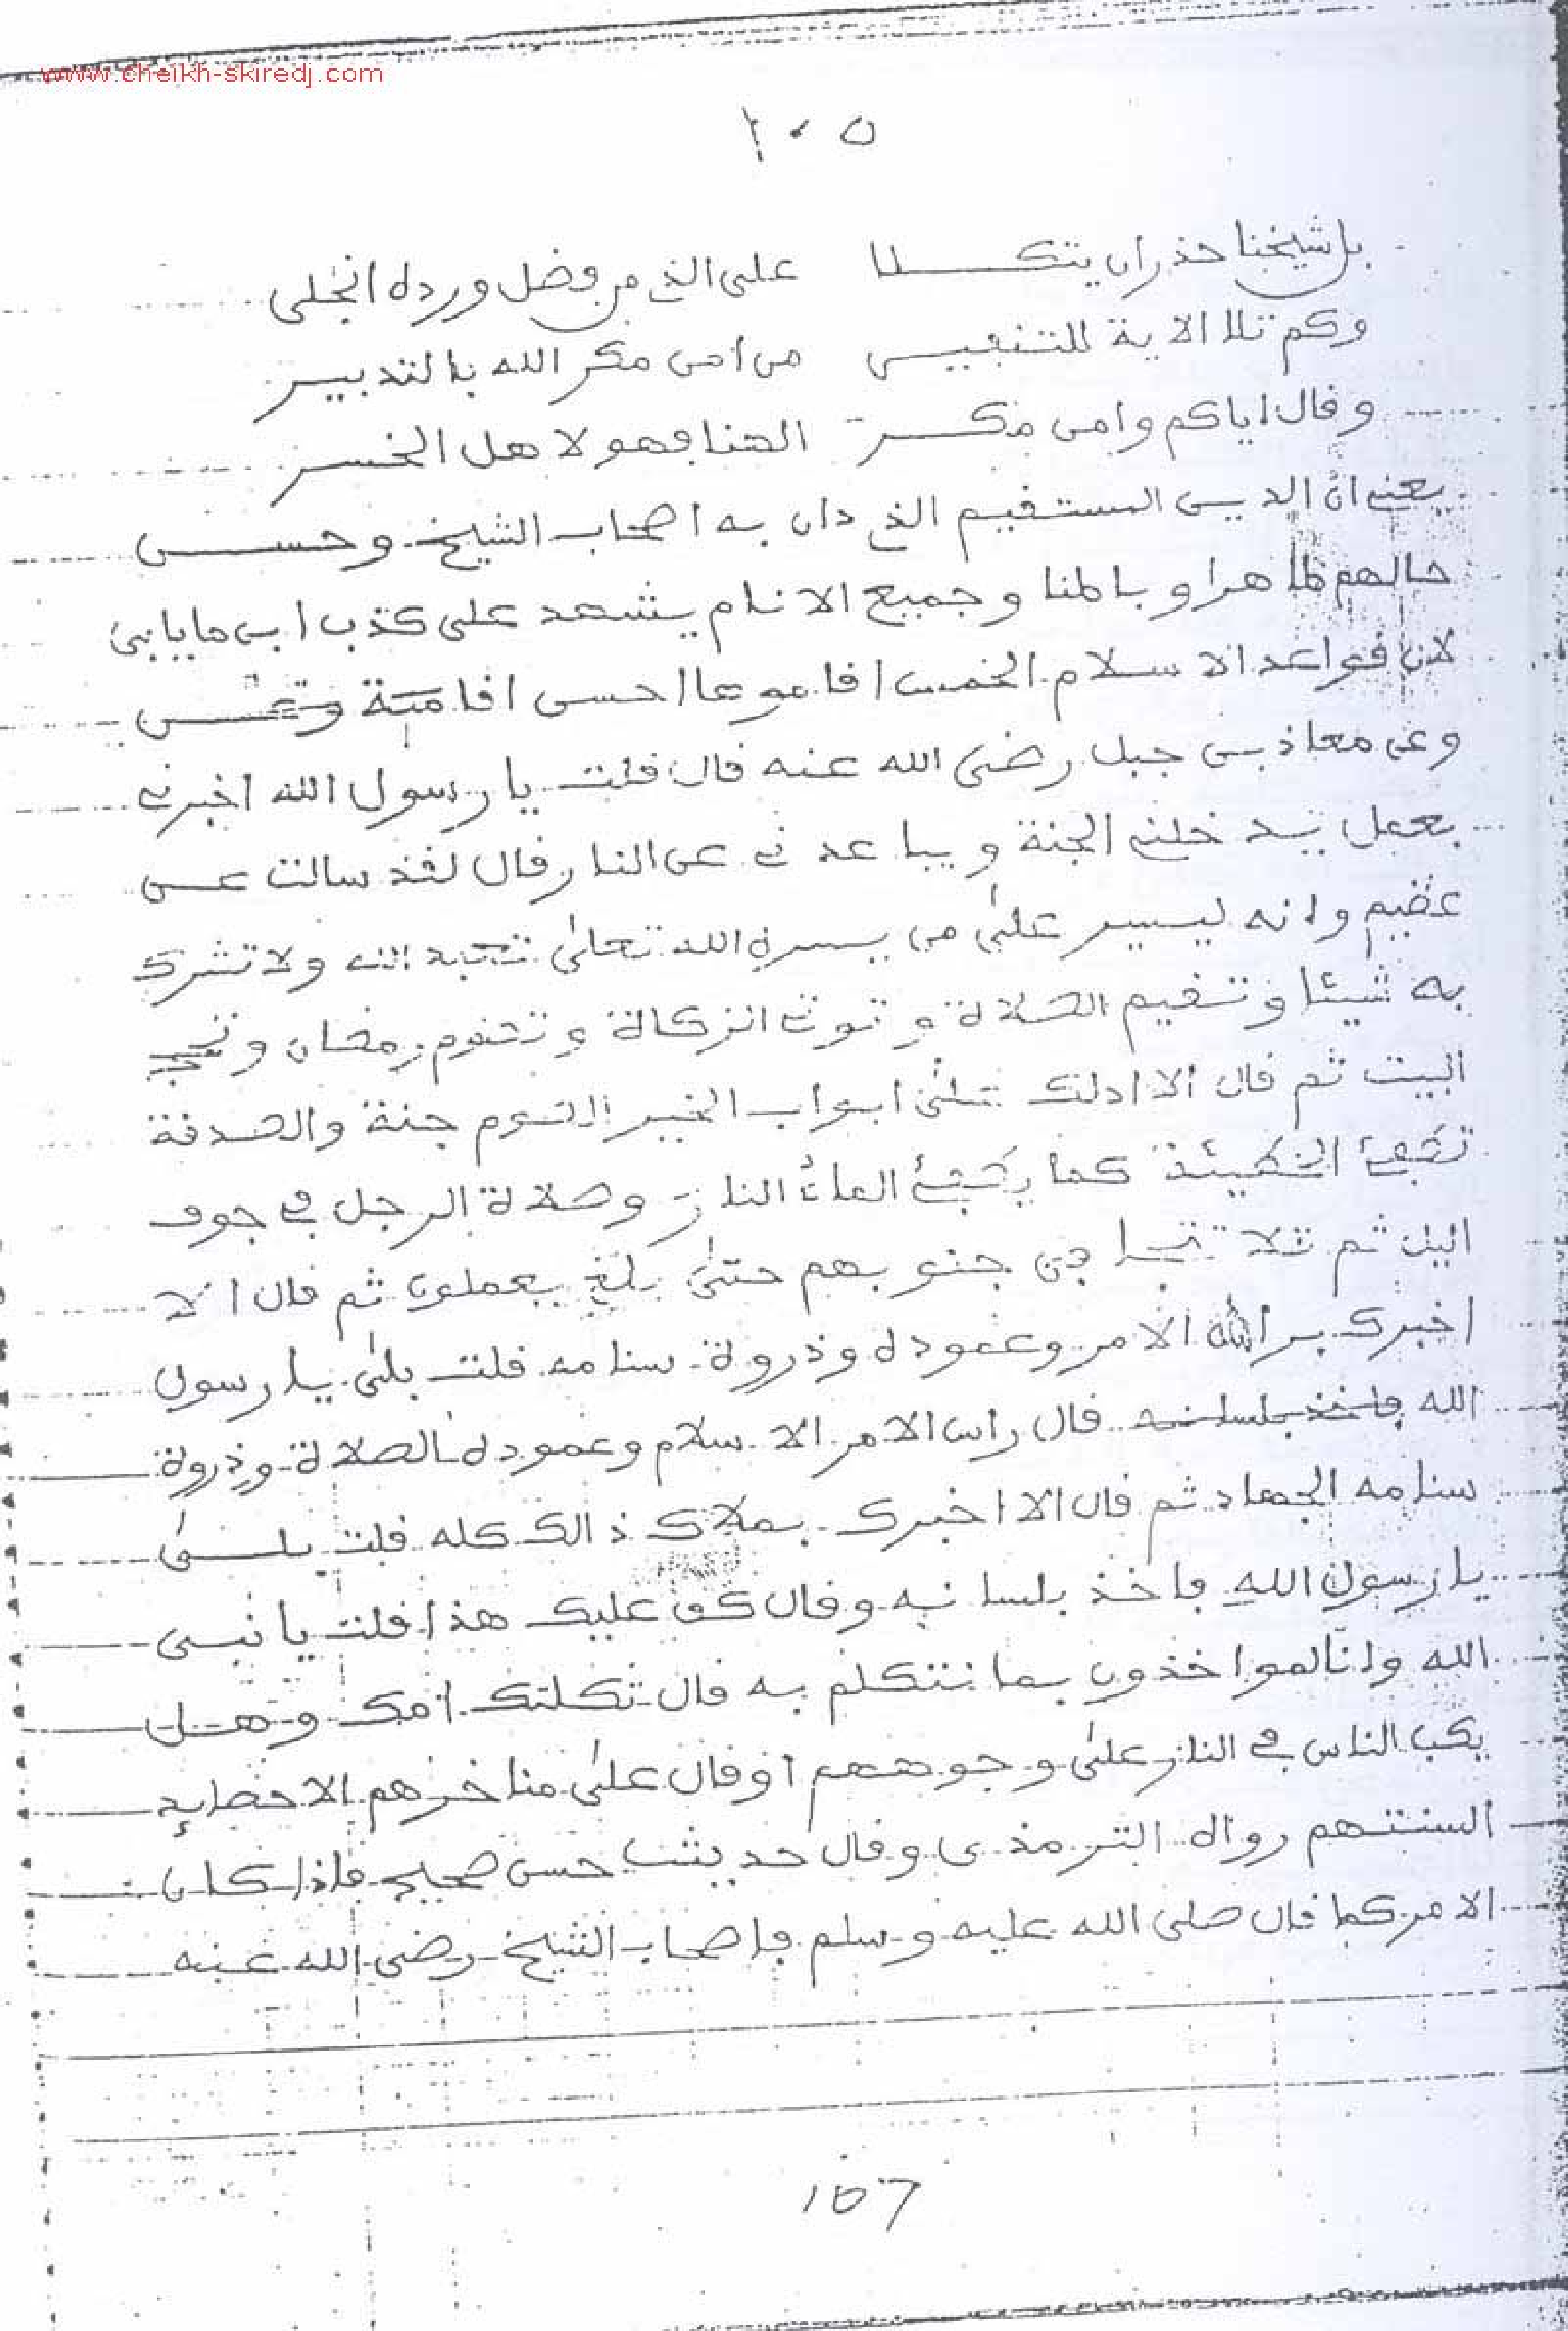 www.cheikh-skiredj.com
١٠٥
بل شيخنا حذر ان يتكلا على الذي من فضل ورده انجلى
وكم تلا الاية للتنفير من امن مكر الله بالتدبير
وقال اياكم وامن مكر الهنا فهو لاهل الخسر
يعني ان الدين المستقيم الذي دان به اصحاب الشيخ وحسن
حالهم ظاهرا وباطنا وجميع الانام يشهد على كذب ابن مايابى
لان قواعد الاسلام الخمس اقاموها احسن اقامة
وعن معاذ بن جبل رضى الله عنه قال قلت يا رسول الله اخبرني
بعمل يدخلني الجنة ويباعدني عن النار قال لقد سالت عن
عظيم وانه ليسير على من يسره الله تعالى تعبد الله ولا تشرك
به شيئا وتقيم الصلاة وتوتي الزكاة وتصوم رمضان وتحج
البيت ثم قال الا ادلك على ابواب الخير الصوم جنة والصدقة
تطفئ الخطيئة كما يطفئ الماء النار وصلاة الرجل في جوف
اليل ثم تلا تتجافى جنوبهم حتى بلغ يعملون ثم قال الا
اخبرك براس الامر وعموده وذروة سنامه قلت بلى يا رسول
الله فاخذ بلسانه قال راس الامر الاسلام وعموده الصلاة وذروة
سنامه الجهاد ثم قال الا اخبرك بملاك ذالك كله قلت بلى
يا رسول الله فاخذ بلسانه وقال كف عليك هذا قلت يا نبى
الله وانا لمواخذون بما نتكلم به قال ثكلتك امك وهل
يكب الناس في النار على وجوههم او قال على مناخرهم الا حصايد
السنتهم رواه الترمذى وقال حديث حسن صحيح فاذا كان
الامر كما قال صلى الله عليه وسلم فاصحاب الشيخ رضى الله عنه
107